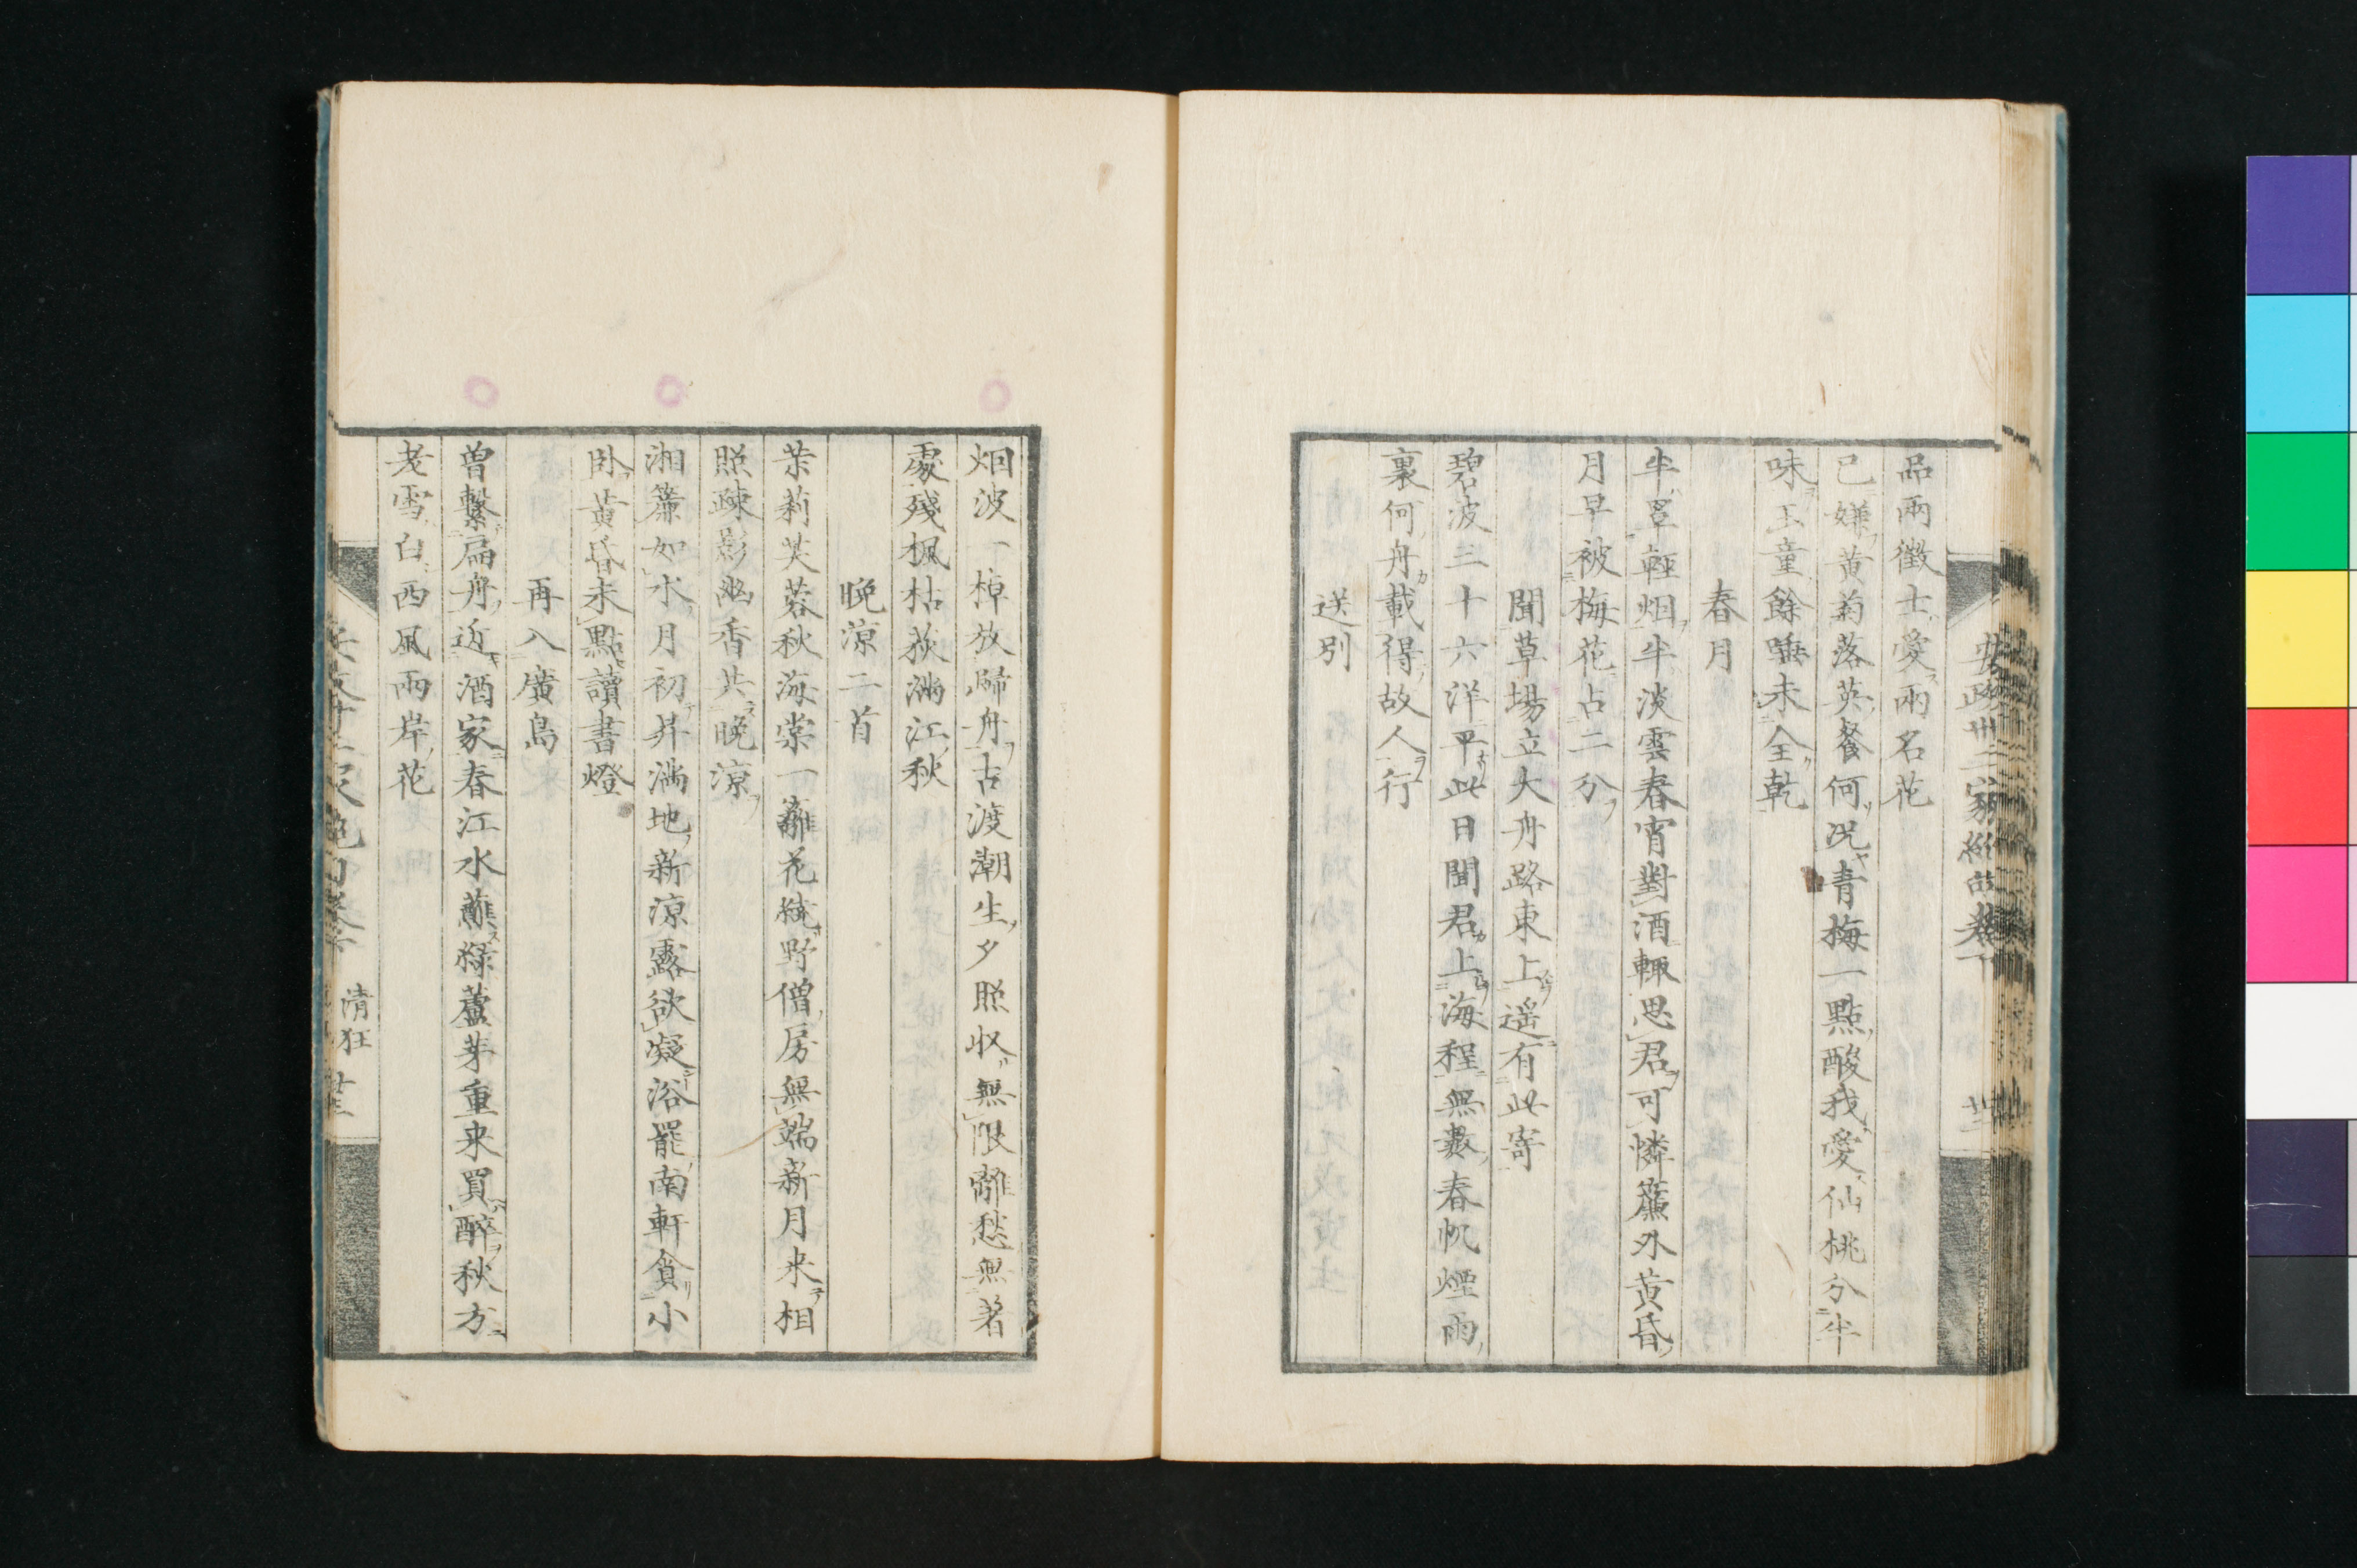 品兩徵士愛兩名花
已嫌黄菊落英餐何况青梅一點酸我愛仙桃分半
味玉童餘唾未全乾
春月
半罩輕烟半淡雲春宵對酒輙思君可憐簾外黄昏
月早被梅花占二分
聞草場立大舟路東上遥有此寄
碧波三十六洋平此日聞君上海程無數春帆煙雨
裏何舟載得故人行
送別
烟波一棹放歸舟古渡潮生夕照収無限離愁無著
處殘楓枯荻滿江秋
晩涼二首
茉莉芙蓉秋海棠一籬花繞野僧房無端新月来相
照疎影幽香共晩涼
湘簾如水月初昇滿地新涼露欲凝浴罷南軒貪小
卧黄昏未點讀書燈
再入廣島
曽繫扁舟近酒家春江水蘸緑蘆芽重来買醉秋方
老雪白西風兩岸花
清狂